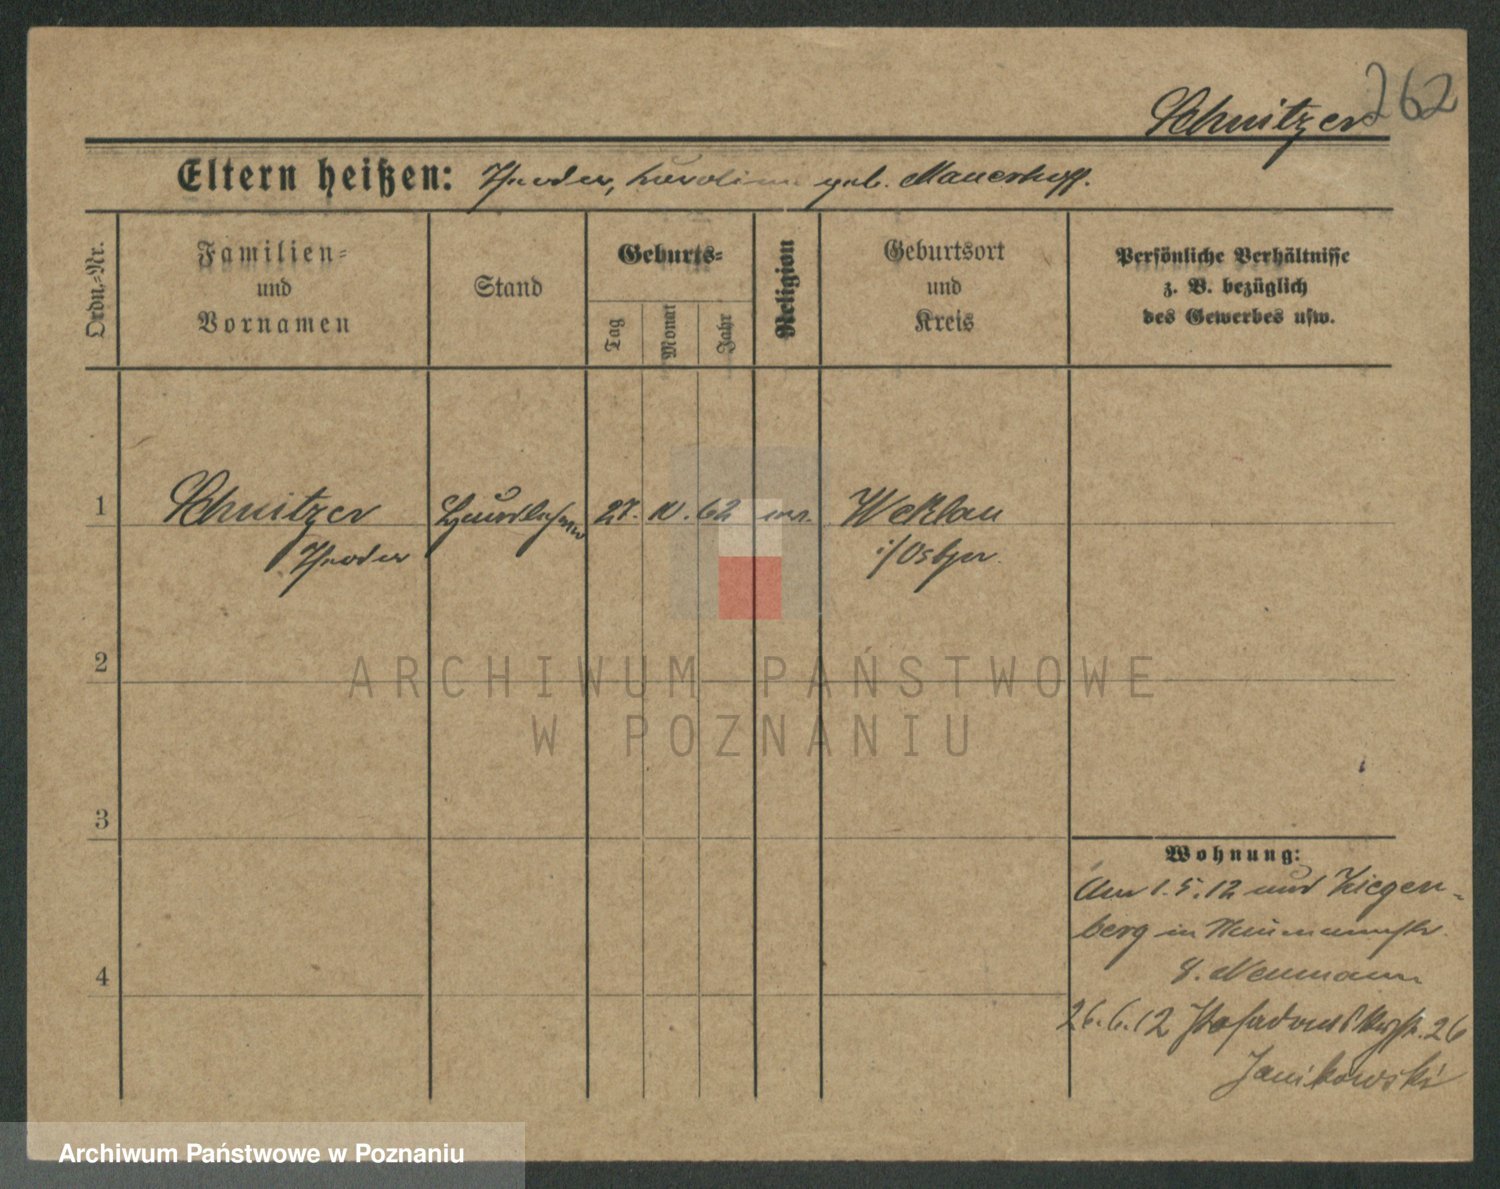 262
Schnitzer
Eltern heißen: Theodor, Karoline geb. Mauerhoff.
Ordn.-Nr.
Familien-
und
Vornamen
Stand
Geburts-
Tag
Monat
Jahr
Religion
Geburtsort
und
Kreis
Persönliche Verhältnisse
z. B. bezüglich
des Gewerbes usw.
1
Schnitzer
Theodor
27. 10. 62
Weklau
i/Ostpr.
2
ARCHIWUM PAŃSTWOWE
W POZNANIU
3
Wohnung:
1.5.12 Ziegen-
berg in
Neumann
26.6.12 26
Janikowski
4
Archiwum Państwowe w Poznaniu